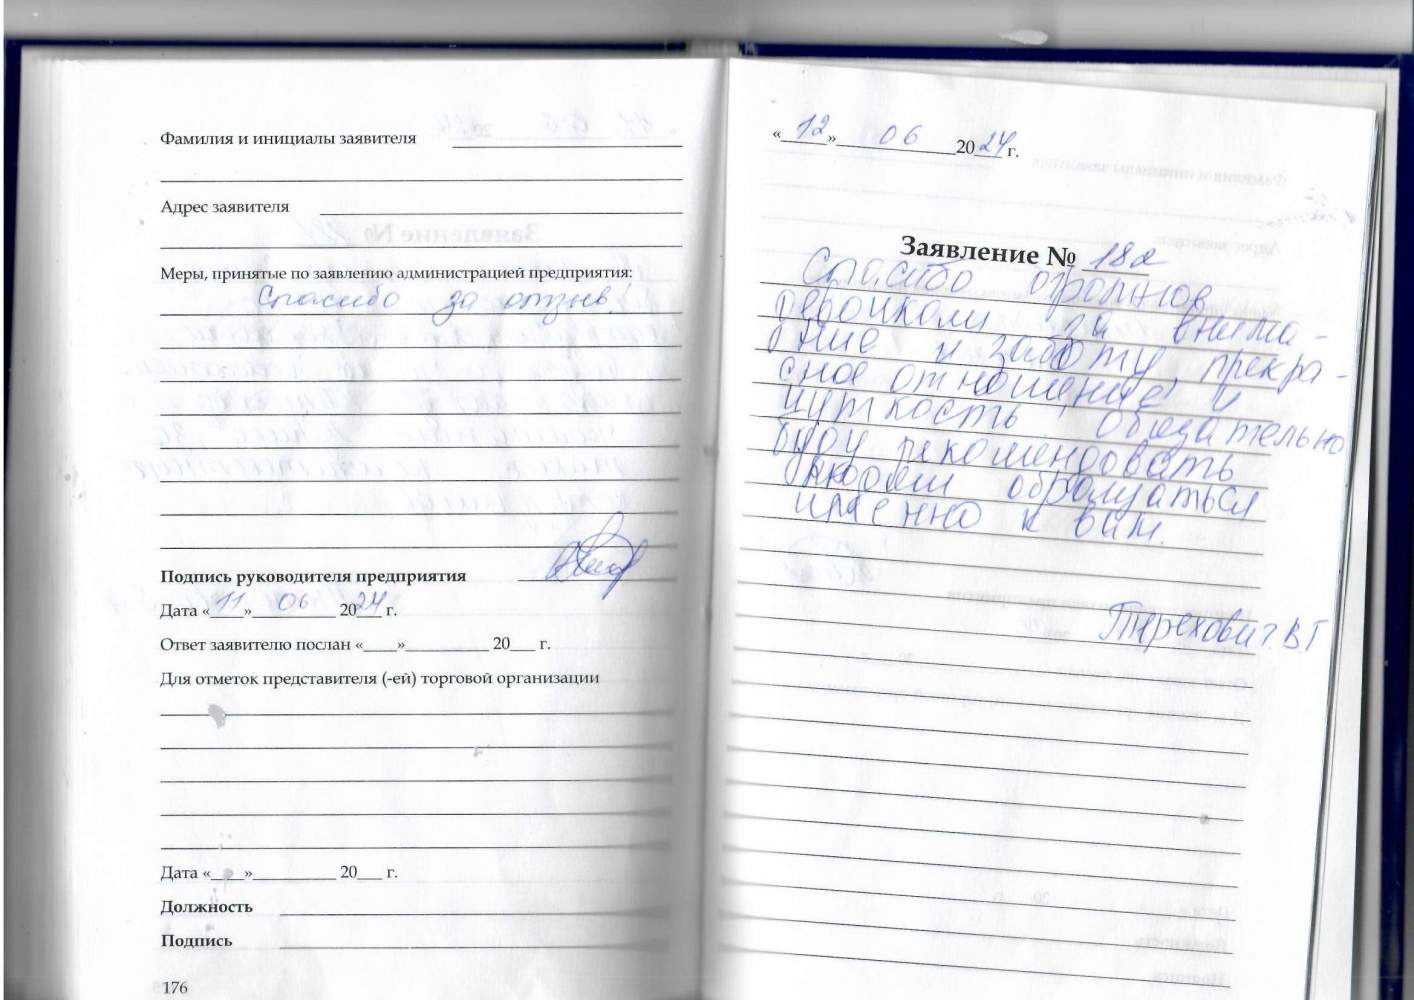 Фамилия и инициалы заявителя
Адрес заявителя
Меры, принятые по заявлению администрацией предприятия:
Спасибо за отзыв!
Подпись руководителя предприятия
Дата «11» 06 2024 г.
Ответ заявителю послан «____»__________ 20___ г.
Для отметок представителя (-ей) торговой организации
Дата «____»__________ 20___ г.
Должность
Подпись
176
«12» 06 2024 г.
Заявление № 182
Спасибо огромное
девочкам за внима-
ние и заботу, прекра-
сное отношение и
чуткость. Обязательно
буду рекомендовать
людям обращаться
именно к вам.
Терехович В.Г